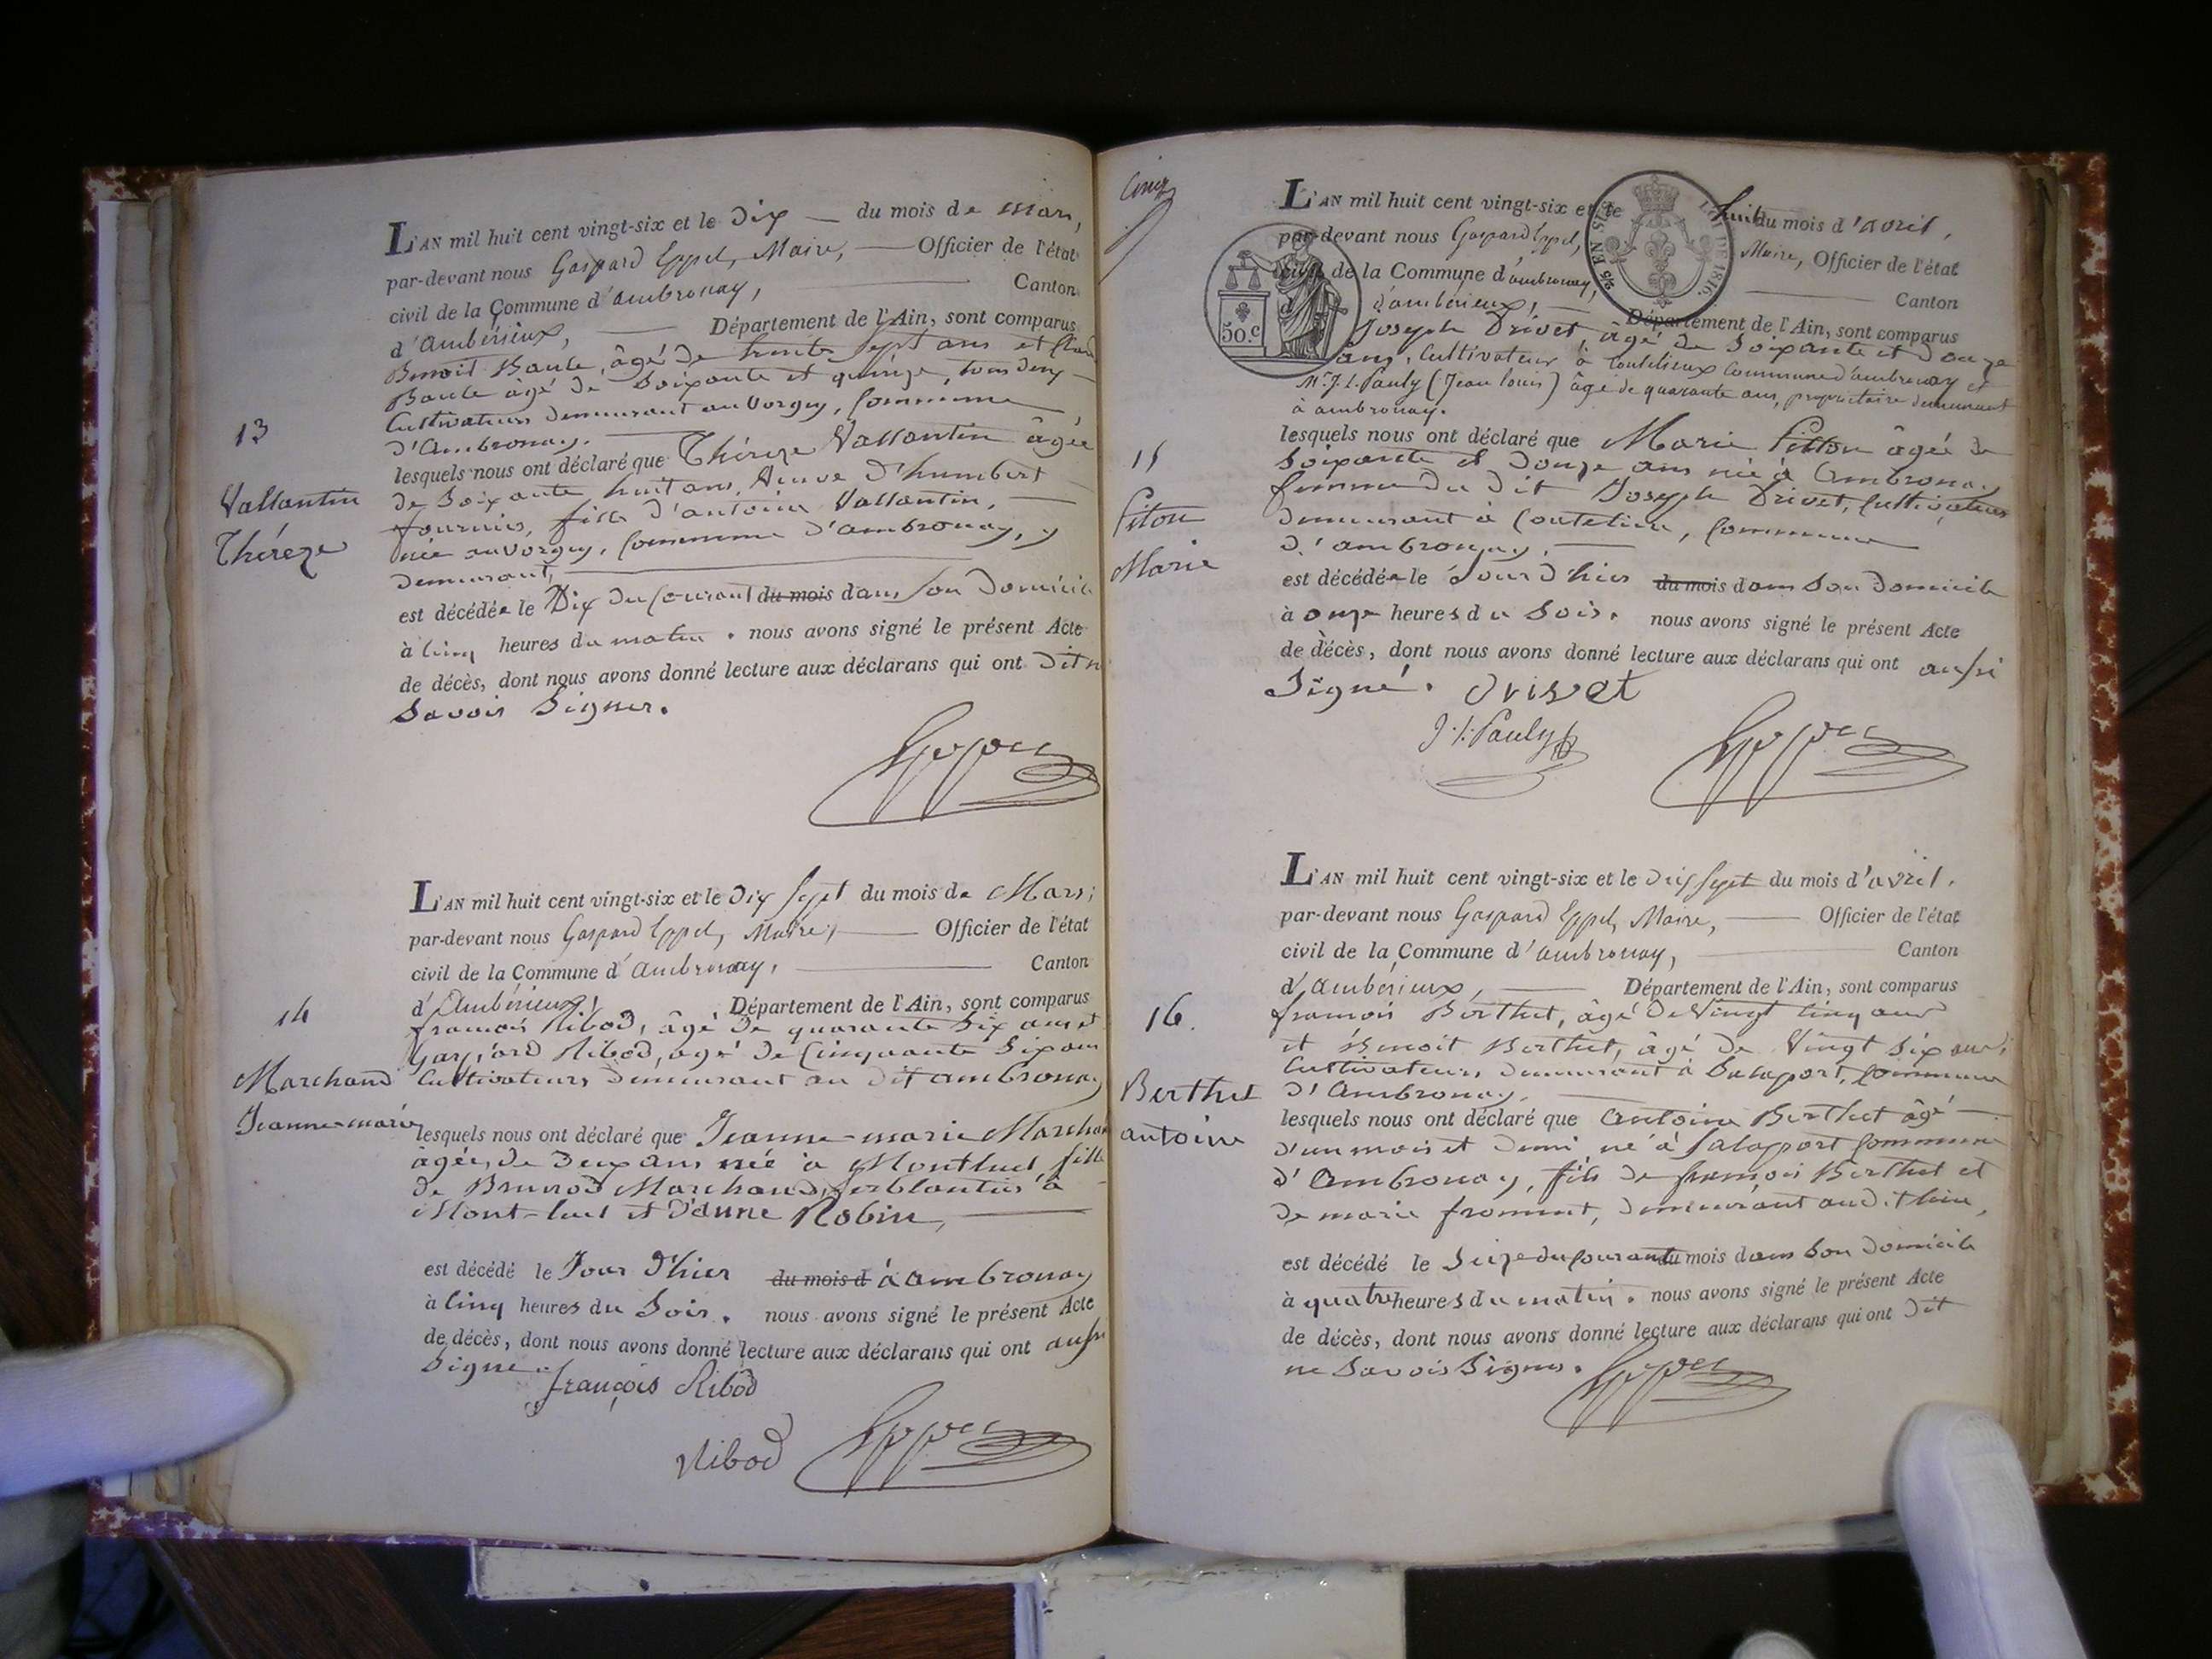 L'AN mil huit cent vingt-six et le Dix du mois de Mars,
par-devant nous Gaspard Eppel, Maire, Officier de l'état
civil de la Commune d'ambronay, Canton
d'ambérieux, Département de l'Ain, sont comparus
Benoit Baule, âgé de trente Sept ans et
Baule âgé de Soixante et quinze, tous deux
Cultivateurs demeurant au Vorgey, Commune
d'Ambronay.
13
lesquels nous ont déclaré que Théreze Vallantin âgée
de Soixante huit ans, Veuve D'humbert
Vallantin
fournier, fille d'antoine Vallantin,
Théreze
née au Vorgey, Commune d'ambronay, y
demeurant,
est décédée le Dix du Courant du mois dans Son Domicile
à Cinq heures du matin. nous avons signé le présent Acte
de décès, dont nous avons donné lecture aux déclarans qui ont Dit ne
Savoir Signer.
Eppel
L'AN mil huit cent vingt-six et le Dix Sept du mois de Mars,
par-devant nous Gaspard Eppel, Maire, Officier de l'état
civil de la Commune d'ambronay, Canton
d'Ambérieux, Département de l'Ain, sont comparus
14
françois Ribod, âgé de quarante Six ans et
Gaspard Ribod, agé de Cinquante Six ans
Marchand
Cultivateurs demeurant au dit ambronay
Jeanne-marie
lesquels nous ont déclaré que Jeanne-marie Marchand
âgée, de Deux ans née à Montluel, fille
de Marchand, ferblantier à
Mont-luel et d'anne Robin,
est décédé le Jour D'hier du mois d à ambronay
à Cinq heures du Soir. nous avons signé le présent Acte
de décès, dont nous avons donné lecture aux déclarans qui ont aussi
Signé.
françois Ribod
Ribod Eppel
Cinq
L'AN mil huit cent vingt-six et le huit du mois d'avril,
par-devant nous Gaspard Eppel, Maire, Officier de l'état
civil de la Commune d'ambronay, Canton
d'ambérieux, Département de l'Ain, sont comparus
50.c
LOI DE 1816.
Joseph Drivet, âgé de Soixante et douze
ans, Cultivateur à Coutelieux Commune d'ambronay et
Mr. J. L. Pauly (Jean louis) âgé de quarante ans, propriétaire demeurant
à ambronay.
15
lesquels nous ont déclaré que Marie Pitton âgée de
Soixante et douze ans née à Ambronay
Piton
femme du dit Joseph Drivet, Cultivateur
demeurant à Coutelieu, Commune
Marie
d'ambronay.
est décédée le Jour d'hier du mois dans Son Domicile
à onze heures du Soir. nous avons signé le présent Acte
de décès, dont nous avons donné lecture aux déclarans qui ont aussi
Signé. Drivet
J. L. Pauly Eppel
L'AN mil huit cent vingt-six et le Dix Sept du mois d'avril,
par-devant nous Gaspard Eppel, Maire, Officier de l'état
civil de la Commune d'ambronay, Canton
d'ambérieux, Département de l'Ain, sont comparus
16.
françois Berthet, âgé de Vingt Cinq ans
et Benoit Berthet, âgé de Vingt Six ans,
Cultivateurs demeurant à Salaport, Commune
Berthet
d'Ambronay.
lesquels nous ont déclaré que Antoine Berthet âgé
antoine
d'un mois et demi, né à Salaport Commune
d'Ambronay, fils de françois Berthet et
de marie froment, demeurant au dit lieu,
est décédé le Seize du Courant du mois dans Son Domicile
à quatre heures du matin. nous avons signé le présent Acte
de décès, dont nous avons donné lecture aux déclarans qui ont Dit
ne Savoir Signer. Eppel